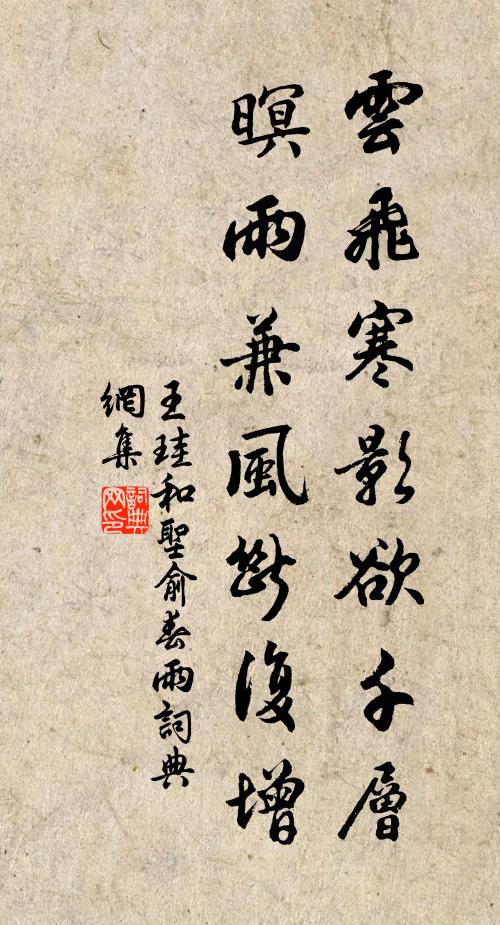 雲飛寒影欲千層
暝雨兼風斷復增
王珪和聖俞春雨詞典
網集
詞典
网印